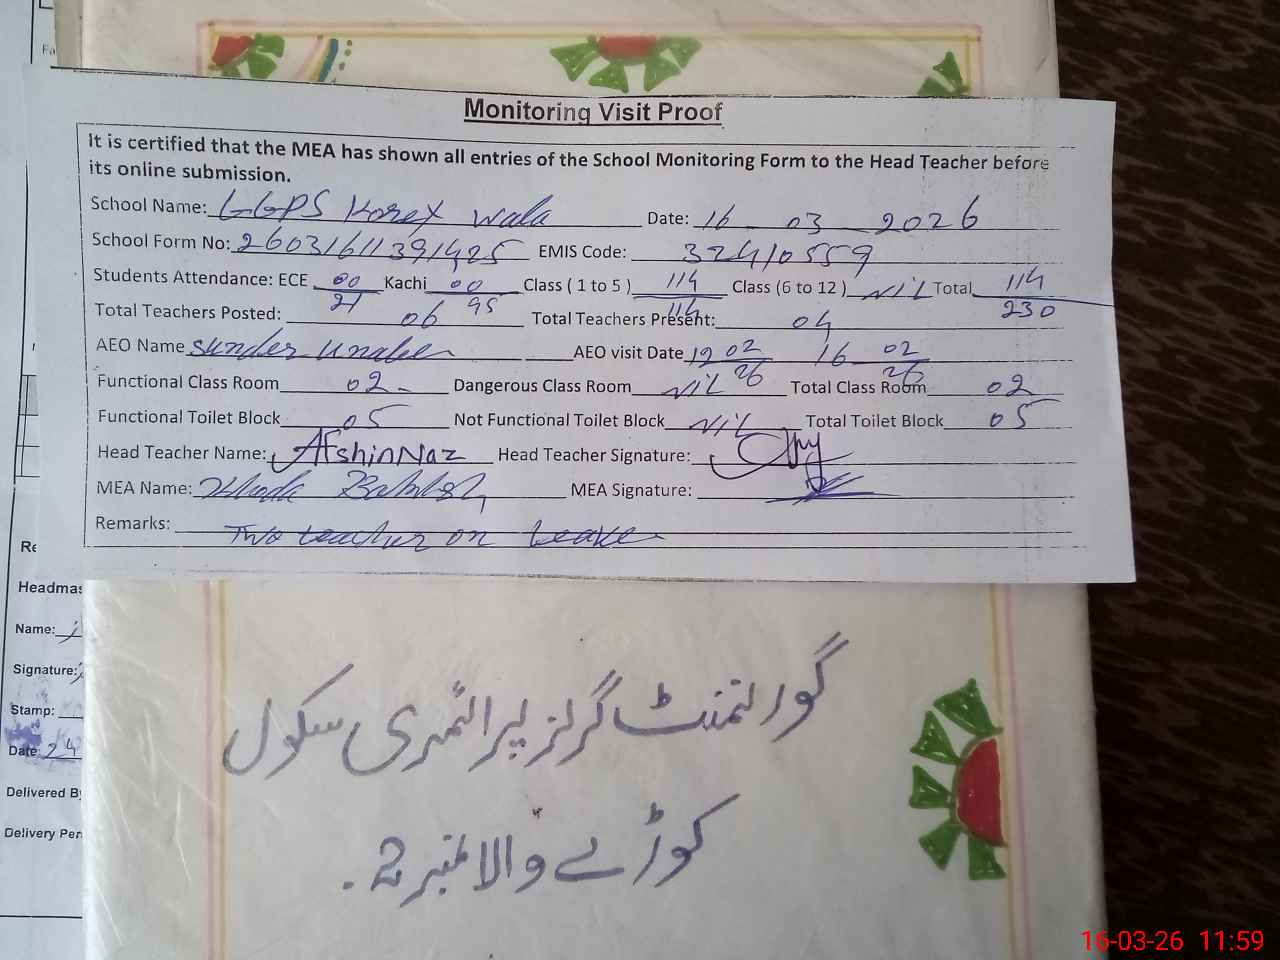 Monitoring Visit Proof
It is certified that the MEA has shown all entries of the School Monitoring Form to the Head Teacher before
its online submission.
School Name: GGPS Korey Wala Date: 16 03 2026
School Form No: EMIS Code: 32410559
Students Attendance: ECE 00/21 Kachi 00/95 Class ( 1 to 5 ) 114/114 Class (6 to 12 ) NiL Total 114/230
Total Teachers Posted: 06 Total Teachers Present: 04
AEO Name AEO visit Date 19 02/26 16 02/26
Functional Class Room 02 Dangerous Class Room NiL Total Class Room 02
Functional Toilet Block 05 Not Functional Toilet Block NiL Total Toilet Block 05
Head Teacher Name: Afshin Naz Head Teacher Signature:
MEA Name: Khoda Bakhsh MEA Signature:
Remarks: Two teacher on leave
گورنمنٹ گرلز پرائمری سکول
کوڑے والا نمبر 2.
Headmas
Name:
Signature:
Stamp:
Date: 24
Delivered By
Delivery Per
16-03-26 11:59